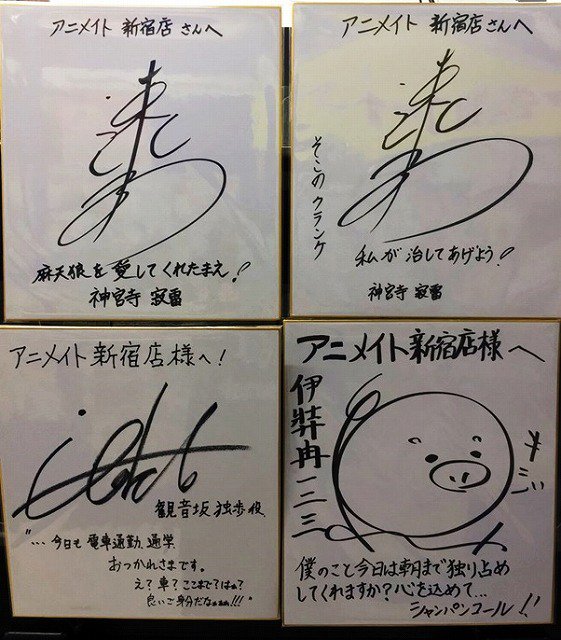 アニメイト 新宿店 さんへ
麻天狼を愛してくれたまえ!
神宮寺 寂雷
アニメイト 新宿店さんへ
そこのクランケ
私が治してあげよう!
神宮寺 寂雷
アニメイト新宿店様へ!
観音坂 独歩役
"…今日も 電車通勤、通学
おつかれさまです。
え?車?ここまでては?
良いご身分だなぁぁぁ!!!"
アニメイト新宿店様へ
伊弉冉一二三
僕のこと今日は朝まで独り占め
してくれますか?心を込めて…
シャンパンコール!!